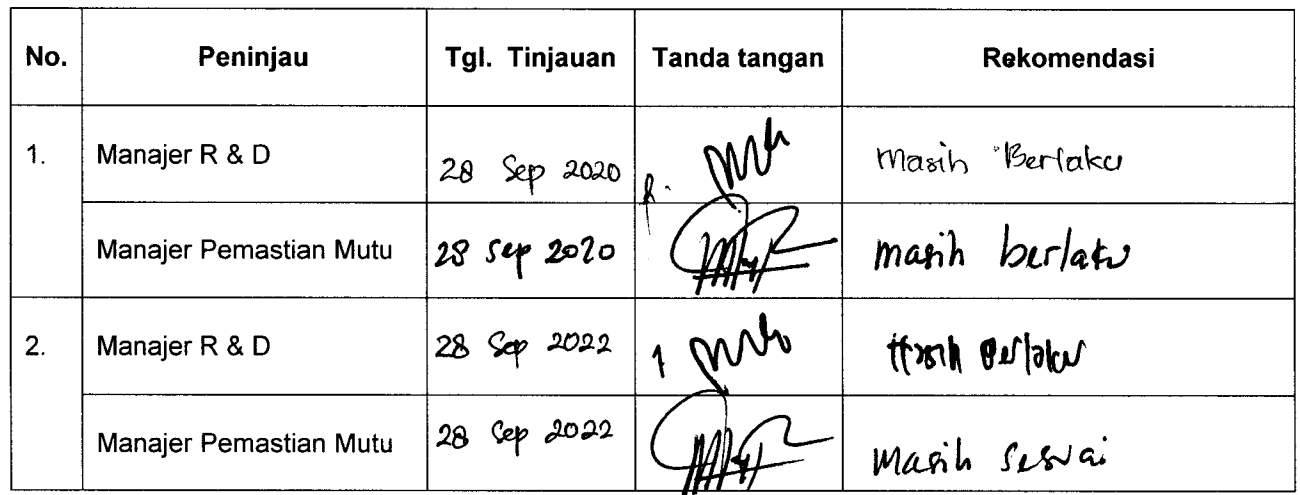 No. Peninjau Tgl. Tinjauan Tanda tangan Rekomendasi
1. Manajer R & D 28 Sep 2020 Masih Berlaku
Manajer Pemastian Mutu 28 Sep 2020 masih berlaku
2. Manajer R & D 28 Sep 2022 Masih Berlaku
Manajer Pemastian Mutu 28 Sep 2022 Masih sesuai